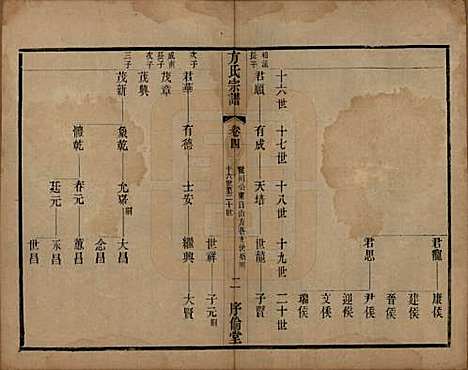 君龍
康侯
建侯
晉侯
君思
尹侯
迎侯
文侯
瑞侯
方氏宗譜
卷四
十六世至二十世
二
序倫堂
十六世
十七世
十八世
十九世
二十世
長子
君順
有成
天培
世龍
子賢
次子
君華
有德
士安
世祥
子元
繼興
大賢
長子
茂章
次子
茂興
三子
茂新
象乾
允嘉
大昌
念昌
體乾
春元
蕙昌
廷元
永昌
世昌